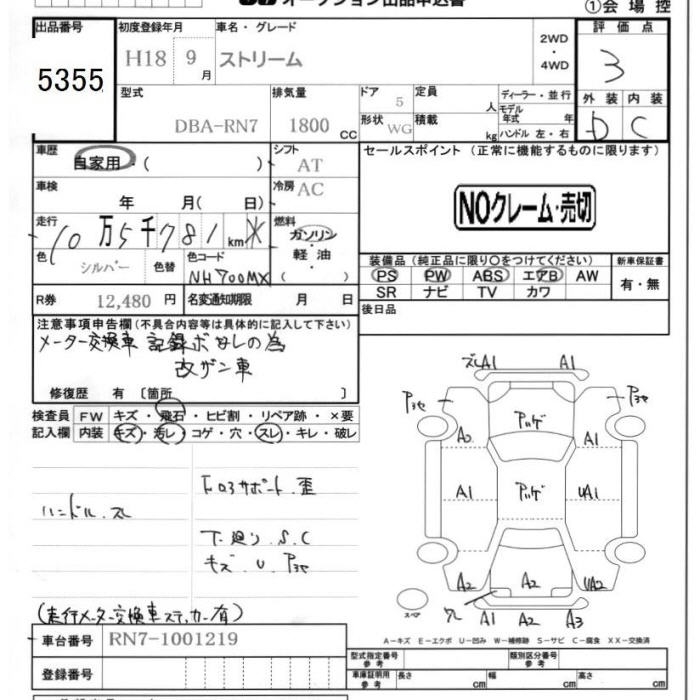 オークション出品申込書
①会場控
出品番号
5355
初度登録年月
H18 9月
車名・グレード
ストリーム
2WD
・
4WD
評価点
3
型式
DBA-RN7
排気量
1800 CC
ドア
5
形状
WG
定員
人
積載
kg
ディーラー・並行
モデル
年式 年
ハンドル 左・右
外装 内装
D C
車歴
自家用・( )
シフト
AT
車検
年 月( 日)
冷房
AC
走行
10万5千781km
燃料
ガソリン
・
軽油
( )
色
シルバー
色替
色コード
NH700MX
R券
12,480円
名変通知期限 月 日
セールスポイント (正常に機能するものに限ります)
NOクレーム・売切
装備品(純正品に限り○をつけてください)
PS PW ABS エアB AW
SR ナビ TV カワ
新車保証書
有・無
後日品
注意事項申告欄(不具合内容等は具体的に記入して下さい)
メーター交換車 記録ボなしの為
改ザン車
修復歴 有 〔箇所 〕
検査員
記入欄
FW キズ・飛石・ヒビ割・リペア跡・×要
内装 キズ・汚レ・コゲ・穴・スレ・キレ・破レ
ハンドル.スレ
下廻り.S.C
キズ.U.
(走行メーター交換車ステッカー有)
車台番号 RN7-1001219
登録番号
A1 A1
アッゲ
A0 A1
A1 アッゲ UA1
A2 A2 UA2
スペア
A1 A2 A3
A-キズ E-エクボ U-凹み W-補修跡 S-サビ C-腐食 XX-交換済
型式指定番号
参考
類別区分番号
参考
車庫証明用
参考
長さ cm 幅 cm 高さ cm